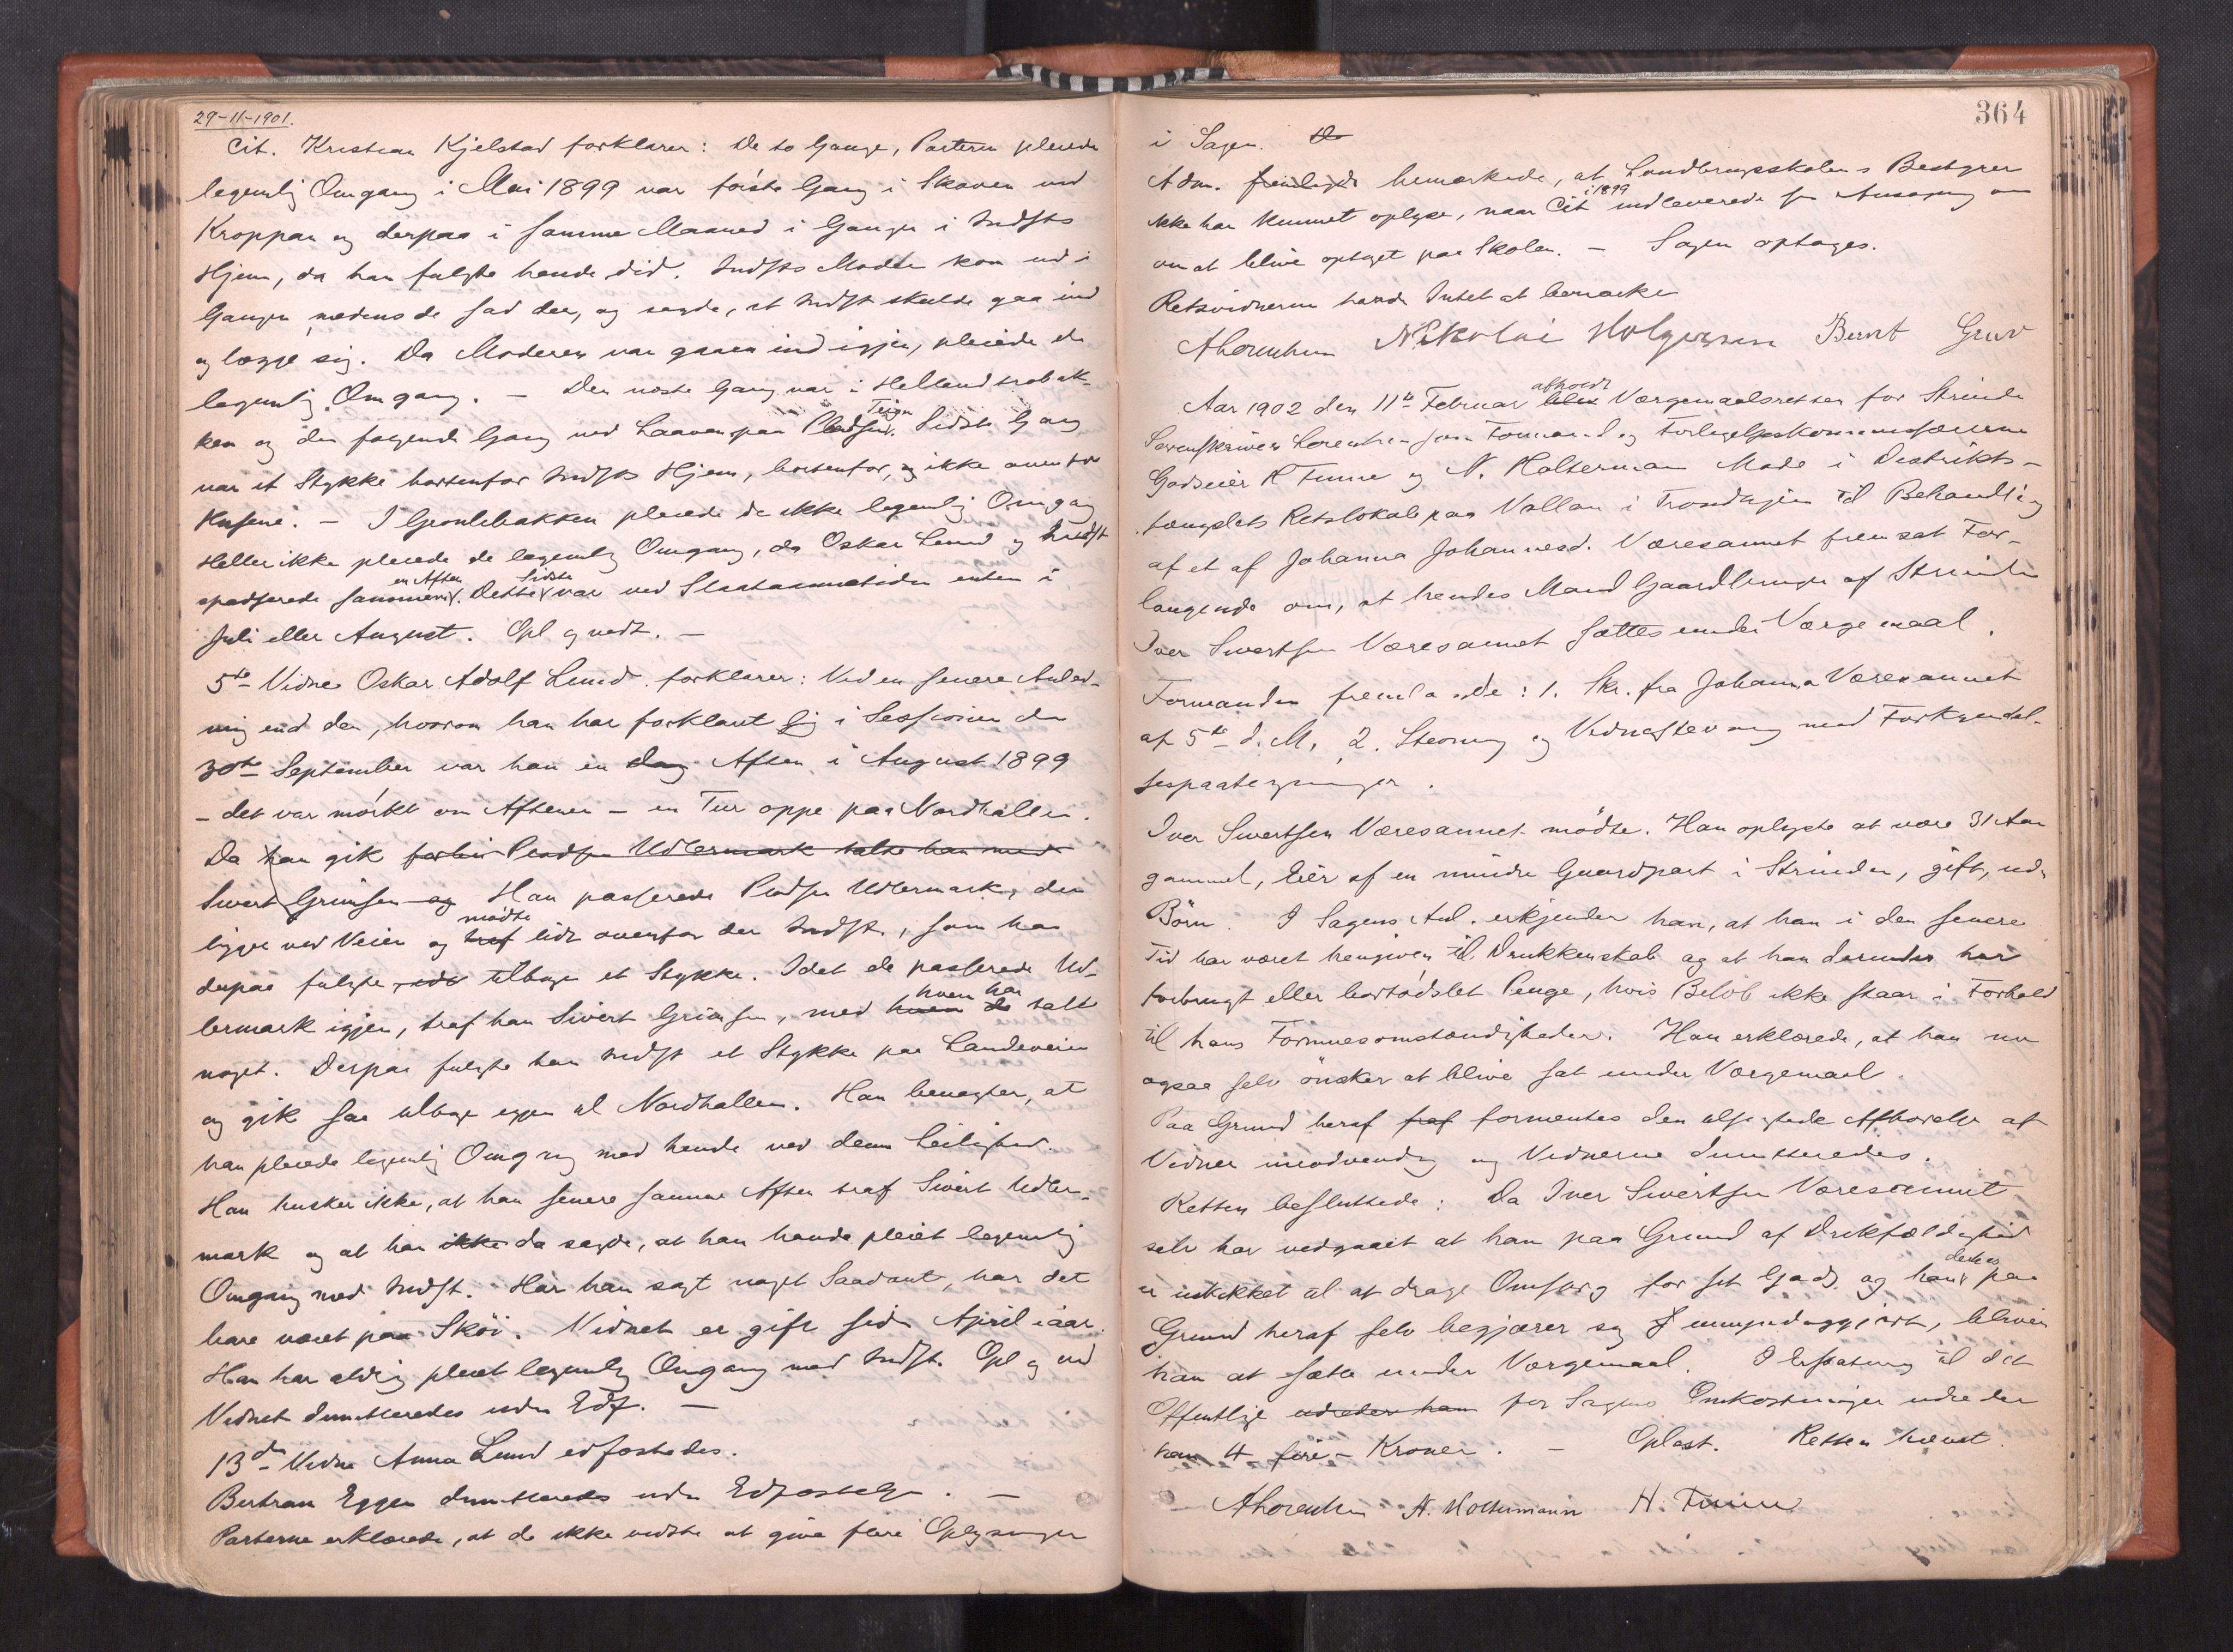 29-11-1901.
Cit. Kristian Kjelstad forklarer: De to Gange, Parterne pleiede
legemlig Omgang i Mai 1899 var første Gang i Skoven ved
Kroppan og derpaa i samme Maaned i Gangen i Indsts
Hjem, da han fulgte hende did. Indsts Moder kom ud i
Gangen medens de sad der, og sagde, at Indst skulde gaa ind
og lægge sig. Da Moderen var gaaen ind igjen, pleiede de
legemlig Omgang. – Den næste Gang var i Helland
ken og den følgende Gang ved Laaven paa Pladsen Teign. Sidste Gang
var et Stykke bortenfor Indsts Hjem, bortenfor, og ikke ovenfor
Husene. – I pleiede de ikke legemlig Omgang
Heller ikke pleiede de legemlig Omgang, da Oskar Lund og Indst
spadserede sammen en Aften. Dette sidste var ved Slaataannstiden enten i
Juli eller August. Opl og vedt. –
5te Vidne Oskar Adolf Lund forklarer: Ved en senere Anled-
ning end den, hvorom han har forklaret sig i Sessionen den
30te September var han en Dag Aften i August 1899
– det var mørkt om Aftenen – en Tur oppe paa Nordhallen.
Da han gik forbi Pladsen Udlermark talte han med
Sivert Grimsen og Han passerede Pladsen Udlermark, der
ligger ved Veien og traf mødte lidt ovenfor der Indst., som han
derpaa fulgte tilbage et Stykke. Idet de passerede Ud-
lermark igjen, traf han Sivert Grimsen, med hvem de hvem han talte
noget. Derpaa fulgte han Indst et Stykke paa Landeveien
og gik saa tilbage igjen til Nordhallen. Han benegter, at
han pleiede legemlig Omgang med hende ved denne Leilighed.
Han husker ikke, at han senere samme Aften traf Sivert Udler-
mark og at han ikke da sagde, at han havde pleiet legemlig
Omgang med Indst. Har han sagt noget Saadant, har det
bare været paa Skøi. Vidnet er gift siden April iaar.
Han har aldrig pleiet legemlig Omgang med Indst. Opl og ved
Vidnet dimitteredes uden Edf. –
13de Vidne Anna Lund edfæstedes.
Bertran Eggen dimitteredes uden Edfæstelse. –
Parterne erklærede, at de ikke vidste at give flere Oplysninger
364
i Sagen. De
Adm. fremlagde bemærkede, at Landbrugsskolens Bestyrer
ikke har kunnet oplyse, naar Cit i 1899 indleverede sin Ansøgning om
om at blive optaget paa Skolen. – Sagen optages.
Retsvidnerne havde Intet at bemærke
ALorentzen Nikolai Holgersen Bernt Grav
Aar 1902 den 11te Februar blev afholdt Værgemaalsretten for Strinda
Sorenskriver Lorentzen som Formand og Forligelseskommissærerne
Godseier H Finne og N. Holtermann Møde i Distrikts-
fængslets Retslokale paa Vollan i Trondhjem til Behandling
af et af Johanna Johannesd. Væresaunet fremsat For-
langende om, at hendes Mand Gaardbruger af Strinden
Iver Sivertsen Væresaunet sættes under Værgemaal.
Formanden fremlagde: 1. Skr. fra Johanna Væresaunet
af 5te d. M. 2. Stevning og Vidnestevning med Forkyndel-
sespaategninger.
Iver Sivertsen Væresaunet mødte. Han oplyste at være 31 Aar
gammel, Eier af en mindre Gaardpart i Strinden, gift, uden
Børn. I Sagens Anl. erkjender han, at han i den senere
Tid har været hengiven til Drukkenskab og at han derunder har
forbrugt eller bortødslet Penge, hvis Beløb ikke staar i Forhold
til hans Formuesomstændigheder. Han erklærede, at han nu
ogsaa selv ønsker at blive sat under Værgemaal.
Paa Grund heraf formentes den Afhørelse af
Vidner unødvendig og Vidnerne dimitteredes.
Retten besluttede: Da Iver Sivertsen Væresaunet
selv har vedgaaet at han paa Grund af Drikfældighed
er uskikket til at drage Omsorg for sit Gods og han paa
Grund heraf selv begjærer sig umyndiggjort, bliver
han at sætte under Værgemaal. I Erstatning til det
Offentlige udreder han for Sagens Omkostninger udreder
han 4 – fire – Kroner. – Oplæst. Retten hævet.
ALorentzen N. Holtermann H. Finne